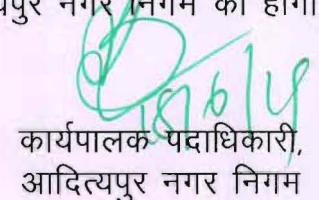 पुर नगर निगम का होगा
18/6/14
कार्यपालक पदाधिकारी,
आदित्यपुर नगर निगम